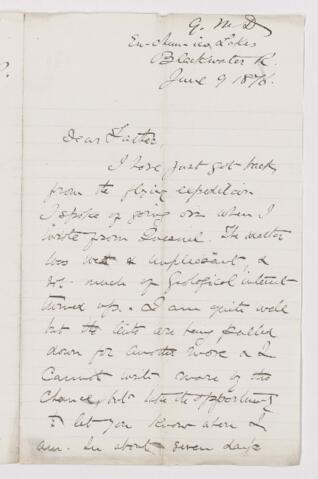 G. M. D
En-chun-ico Lakes
Blackwater R.
June 9 1876.
Dear Father,
I have just got back
from the flying expedition
I spoke of going on when I
wrote from Quesnel. The weather
was wet & unpleasant, &
not much of Geological interest
turned up. I am quite well
but the tents are being pulled
down for another move & I
cannot write more by this
chance, but take the opportunity
to let you know where I
am. In about seven days